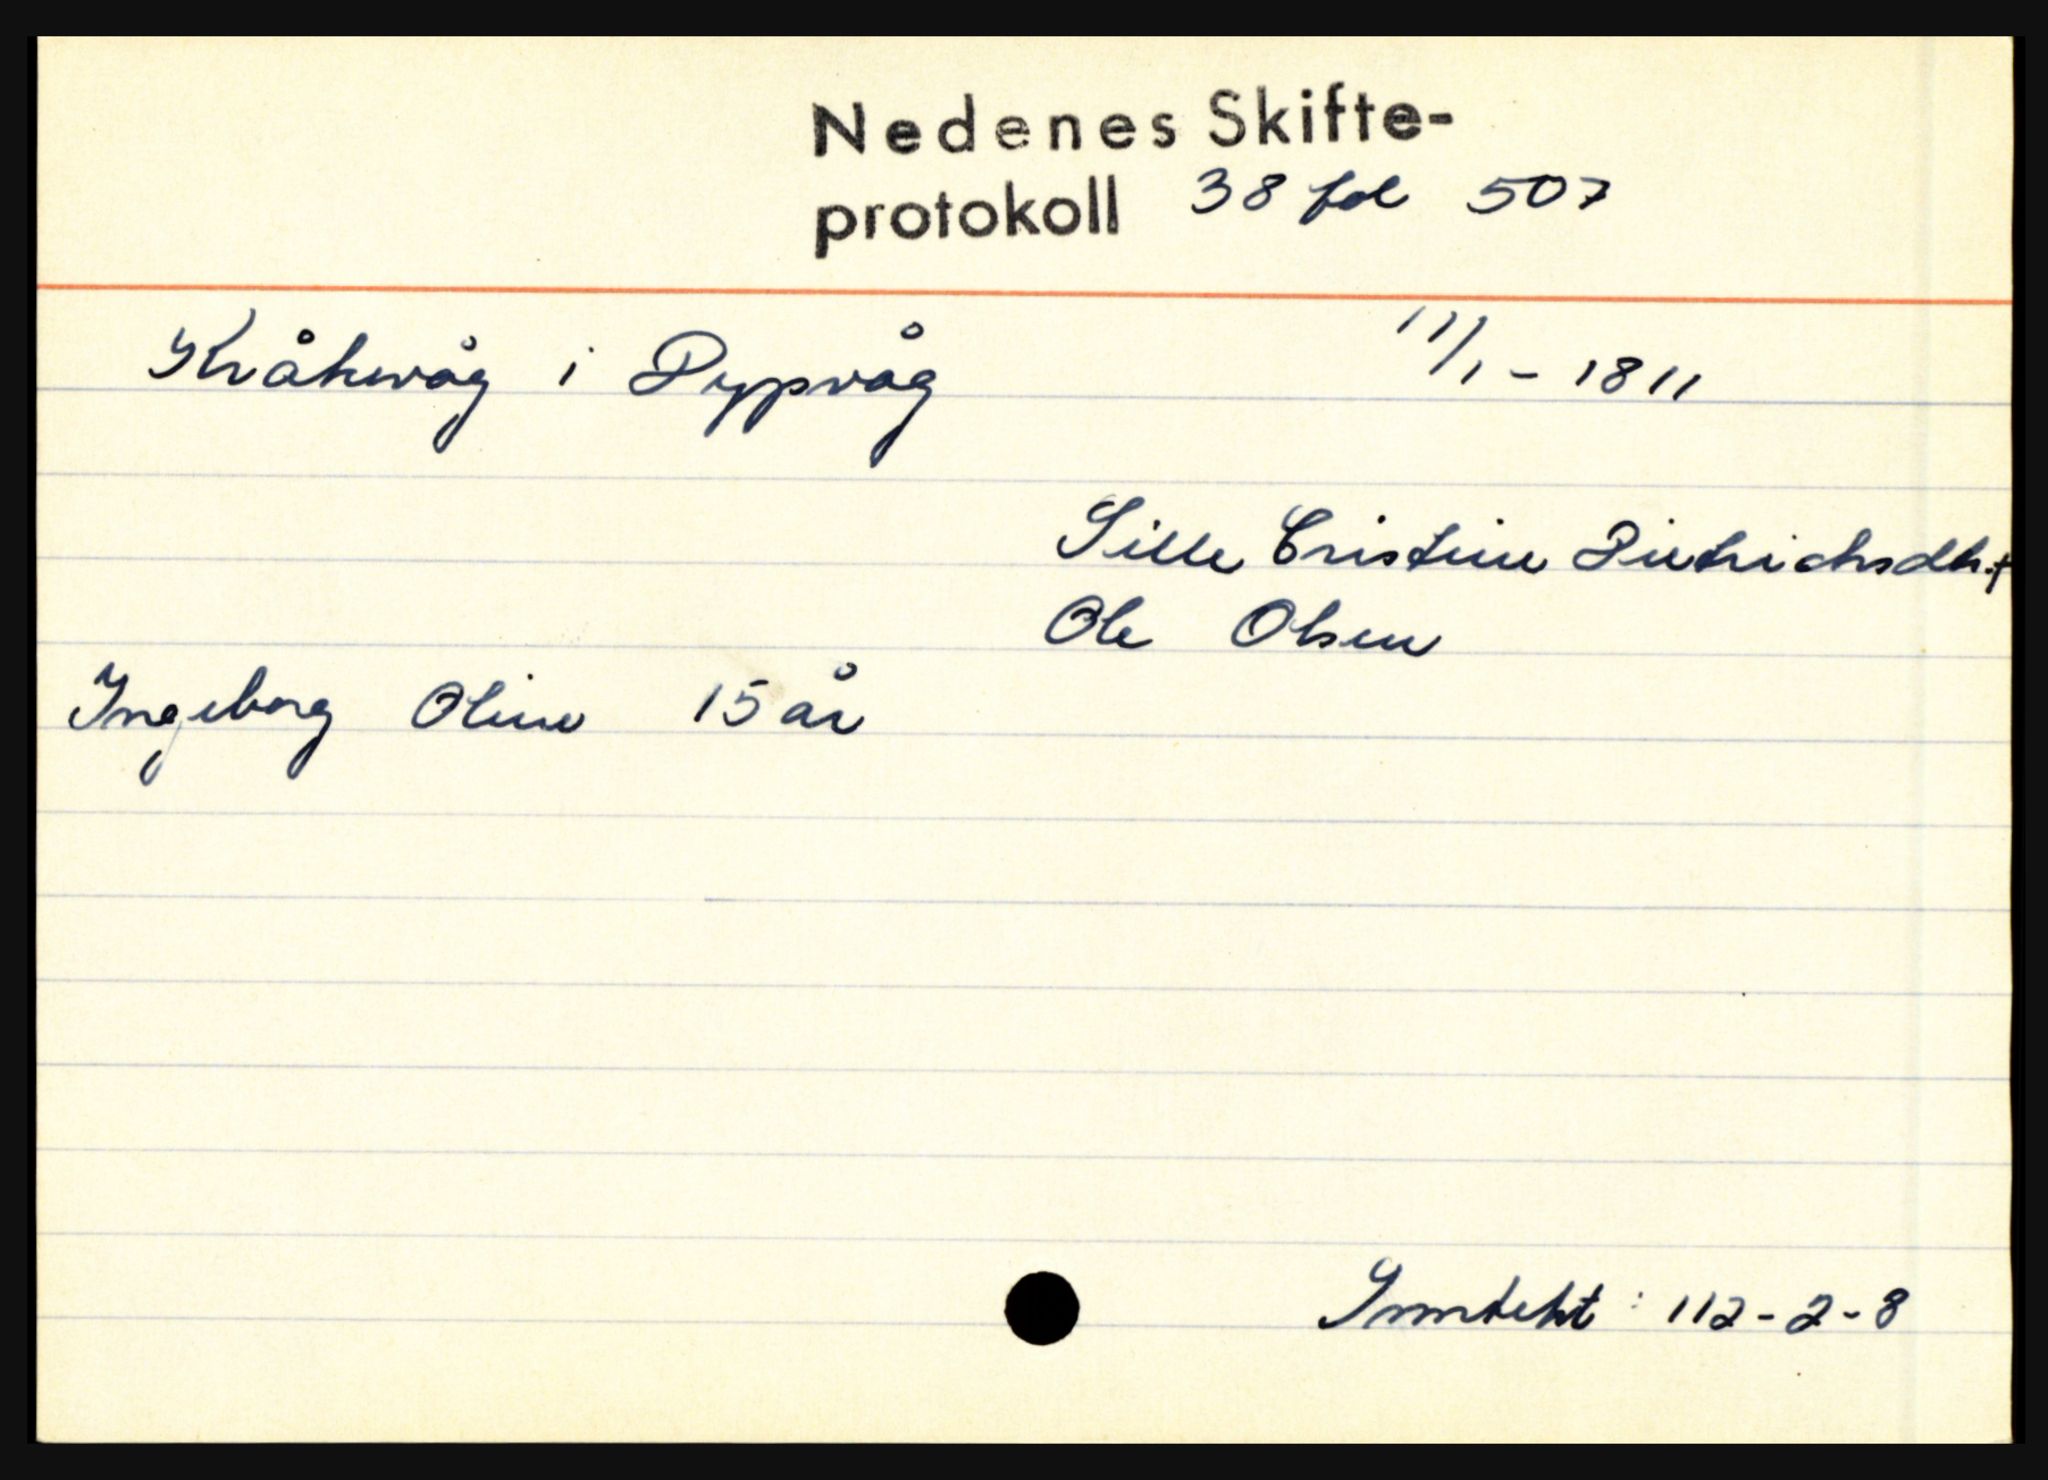 Nedenes Skifte-
protokoll 38 fol 507
Kråkevåg i Dypvåg 11/1 - 1811
Sille Cristine Dietrichsdtr.+
Ole Olsen
Ingeborg Oline 15 år
Inntekt : 112-2-8